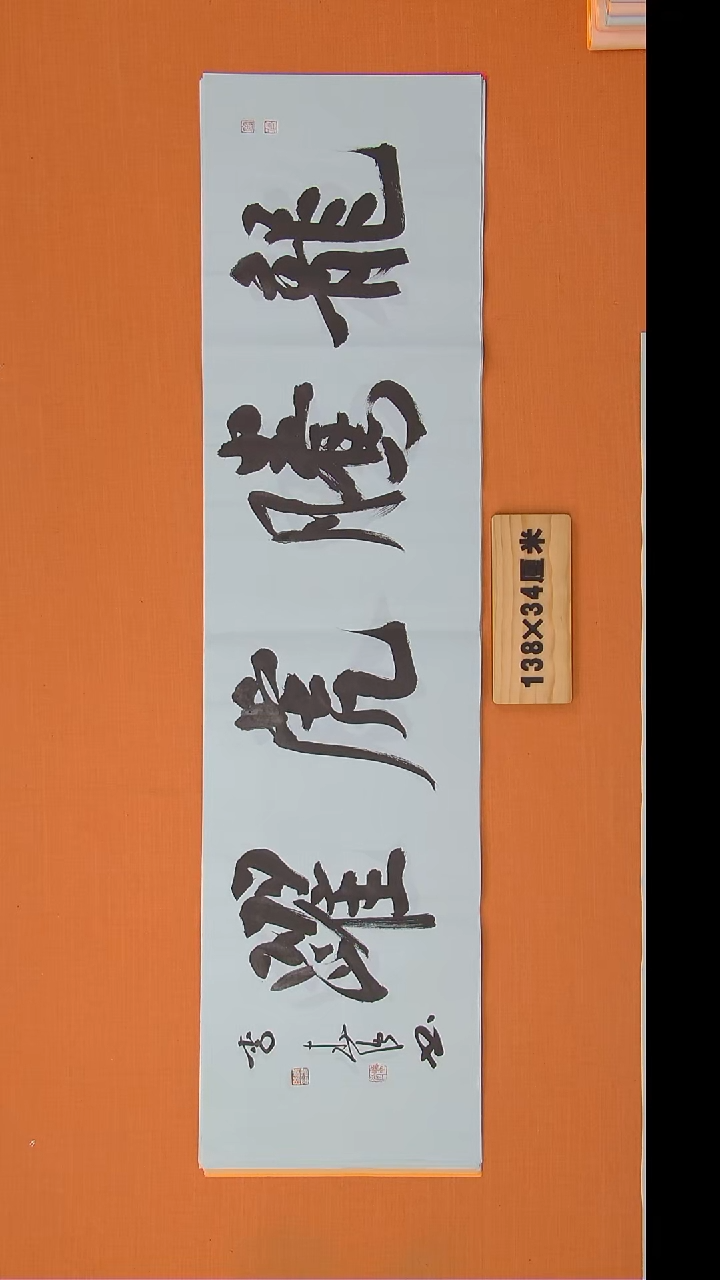 龍騰虎躍
138×34厘米